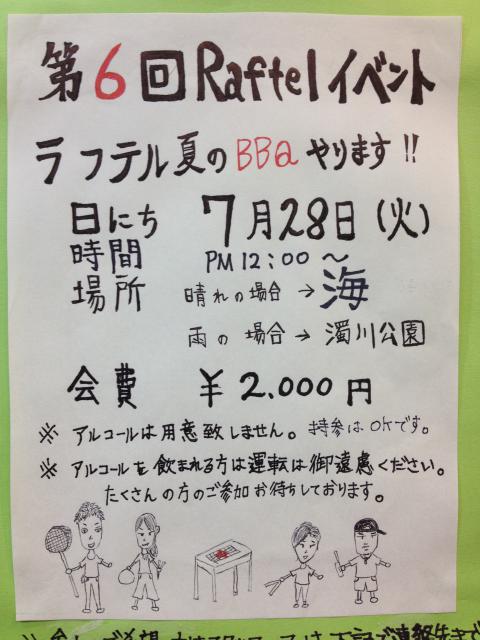 第6回Raftelイベント
ラフテル夏のBBQやります!!
日にち 7月28日(火)
時間 PM12:00～
場所 晴れの場合→海
雨の場合→濁川公園
会費 ¥2.000円
※アルコールは用意致しません。持参はOKです。
※アルコールを飲まれる方は運転は御遠慮ください。
たくさんの方のご参加お待ちしております。